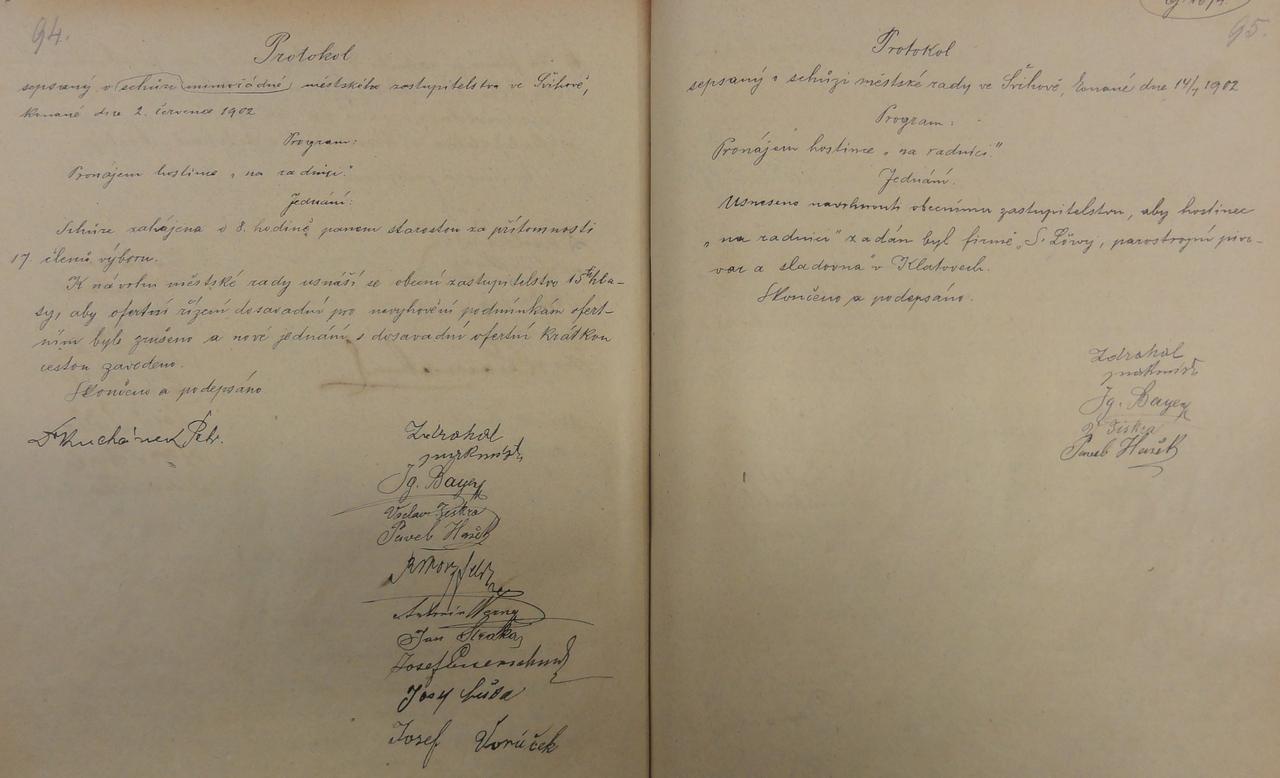 94.
Protokol
sepsaný o schůzi mimořádné městského zastupitelstva ve Švihově,
konané dne 2. července 1902
Program:
Pronájem hostince „na radnici."
Jednání:
Schůze zahájena o 8. hodině panem starostou za přítomnosti
17. členů výboru.
K návrhu městské rady usnáší se obecní zastupitelstvo 15ti hla-
sy, aby ofertní řízení dosavadní pro nevyhovění podmínkám ofert-
ním bylo zrušeno a nové jednání s dosavadní ofertní krátkou
cestou zavedeno.
Skončeno a podepsáno.
Zdrahal
purkmistr
Ig. Bayer
Václav Fiskra
Pavel Hašek
Antonín
Jan Straka
Josef
Josef
Josef Voráček
95.
Protokol
sepsaný o schůzi městské rady ve Švihově, konané dne 14/7 1902
Program:
Pronájem hostince „na radnici"
Jednání.
Usneseno navrhnouti obecnímu zastupitelstvu, aby hostinec
„na radnici" zadán byl firmě „S. Löwy, parostrojní pivo-
var a sladovna" v Klatovech.
Skončeno a podepsáno.
Zdrahal
purkmistr
Ig. Bayer
Fiskra
Pavel Hašek